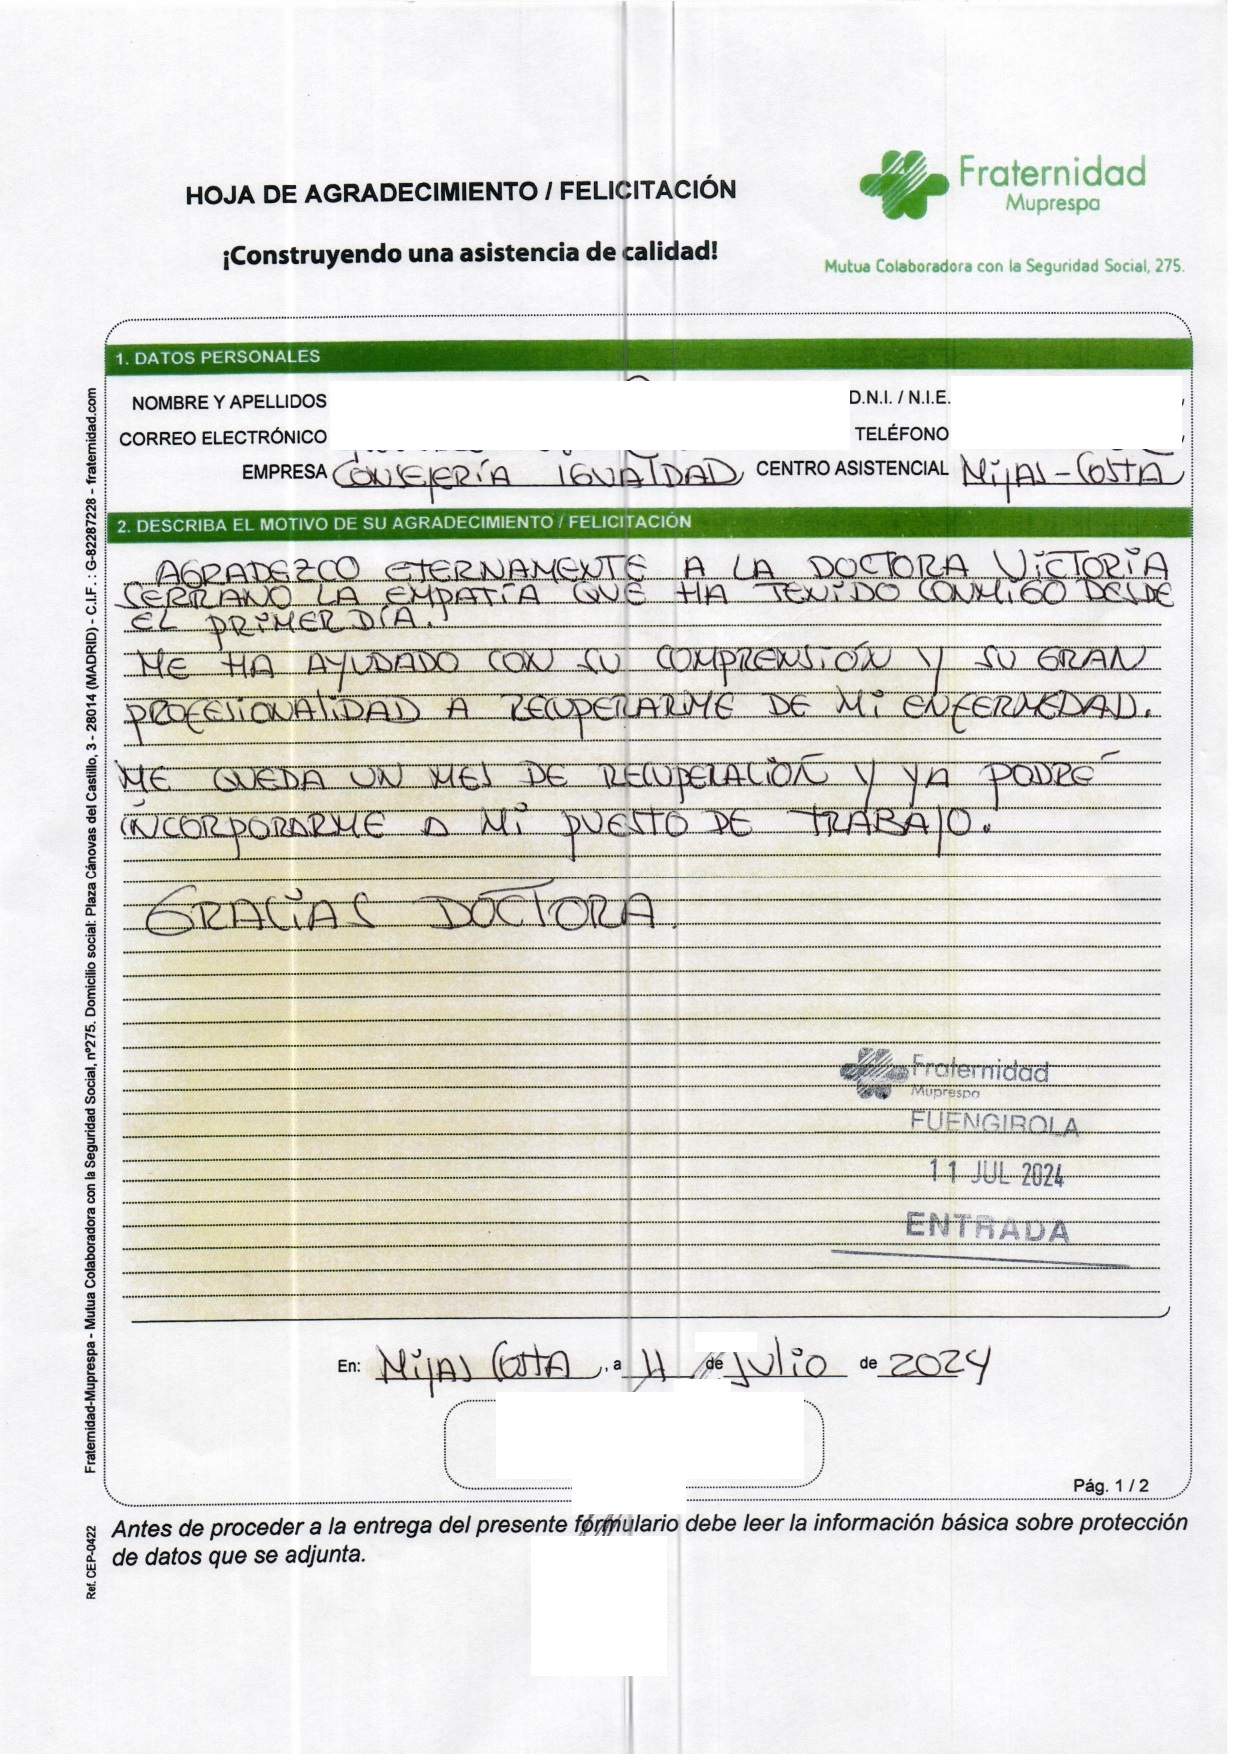 HOJA DE AGRADECIMIENTO / FELICITACIÓN
¡Construyendo una asistencia de calidad!
Fraternidad
Muprespa
Mutua Colaboradora con la Seguridad Social, 275.
1. DATOS PERSONALES
NOMBRE Y APELLIDOS D.N.I. / N.I.E.
CORREO ELECTRÓNICO TELÉFONO
EMPRESA CONSEJERÍA IGUALDAD CENTRO ASISTENCIAL MIJAS-COSTA
2. DESCRIBA EL MOTIVO DE SU AGRADECIMIENTO / FELICITACIÓN
AGRADEZCO ETERNAMENTE A LA DOCTORA VICTORIA
SERRANO LA EMPATÍA QUE HA TENIDO CONMIGO DESDE
EL PRIMER DÍA.
ME HA AYUDADO CON SU COMPRENSIÓN Y SU GRAN
PROFESIONALIDAD A RECUPERARME DE MI ENFERMEDAD.
ME QUEDA UN MES DE RECUPERACIÓN Y YA PODRÉ
INCORPORARME A MI PUESTO DE TRABAJO.
GRACIAS DOCTORA.
Fraternidad
Muprespa
FUENGIROLA
11 JUL 2024
ENTRADA
En: MIJAS COSTA, a 11 de JULIO de 2024
Pág. 1 / 2
Antes de proceder a la entrega del presente formulario debe leer la información básica sobre protección
de datos que se adjunta.
Fraternidad-Muprespa - Mutua Colaboradora con la Seguridad Social, nº275. Domicilio social: Plaza Cánovas del Castillo, 3 - 28014 (MADRID) - C.I.F. : G-82287228 - fraternidad.com
Ref. CEP-0422